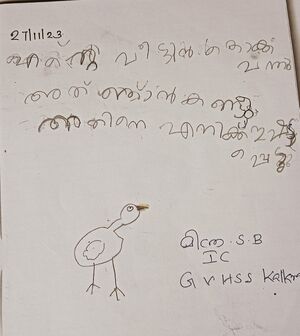 27/11/23
എന്റെ വീട്ടിൽ കൊക്ക്
വന്നു
അത് ഞാൻ കണ്ടു
അതിനെ എനിക്ക് ഇഷ്ട
പെട്ടു
S.B
IC
G V HSS